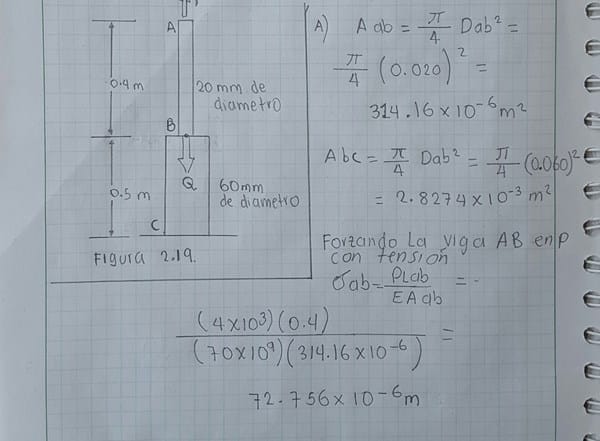 A
0.4 m
20 mm de
diametro
B
Q
0.5 m
60mm
de diametro
C
Figura 2.19.
A) A ab = π/4 Dab² =
π/4 (0.020)² =
314.16 × 10⁻⁶ m²
Abc = π/4 Dab² = π/4 (0.060)²
= 2.8274 × 10⁻³ m²
Forzando La viga AB en P
con tensión
σab = PLab/EAab = -
(4×10³)(0.4)/(70×10⁹)(314.16×10⁻⁶) =
72.756 × 10⁻⁶ m